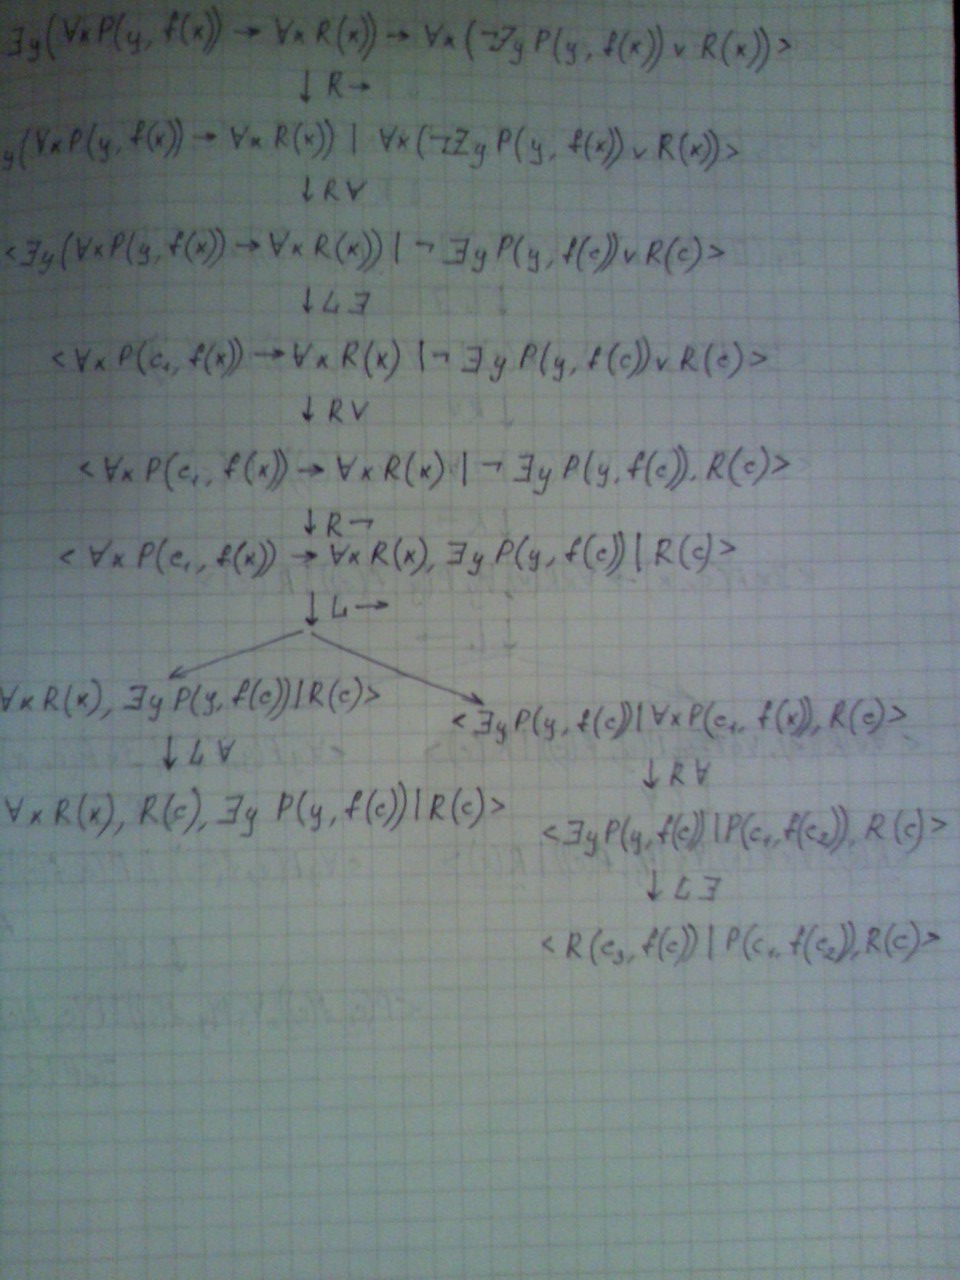 ∃y(∀xP(y, f(x)) → ∀xR(x)) → ∀x(¬∃yP(y, f(x)) ∨ R(x))>
↓ R→
y(∀xP(y, f(x)) → ∀xR(x)) | ∀x(¬∃yP(y, f(x)) ∨ R(x))>
↓ R∀
<∃y(∀xP(y, f(x)) → ∀xR(x)) | ¬∃yP(y, f(c)) ∨ R(c)>
↓ L∃
<∀xP(c₁, f(x)) → ∀xR(x) | ¬∃yP(y, f(c)) ∨ R(c)>
↓ R∨
<∀xP(c₁, f(x)) → ∀xR(x) | ¬∃yP(y, f(c)), R(c)>
↓ R¬
<∀xP(c₁, f(x)) → ∀xR(x), ∃yP(y, f(c)) | R(c)>
↓ L→
∀xR(x), ∃yP(y, f(c)) | R(c)>
<∃yP(y, f(c)) | ∀xP(c₁, f(x)), R(c)>
↓ L∀
↓ R∀
∀xR(x), R(c), ∃yP(y, f(c)) | R(c)>
<∃yP(y, f(c)) | P(c₁, f(c₂)), R(c)>
↓ L∃
<R(c₃, f(c)) | P(c₁, f(c₂)), R(c)>